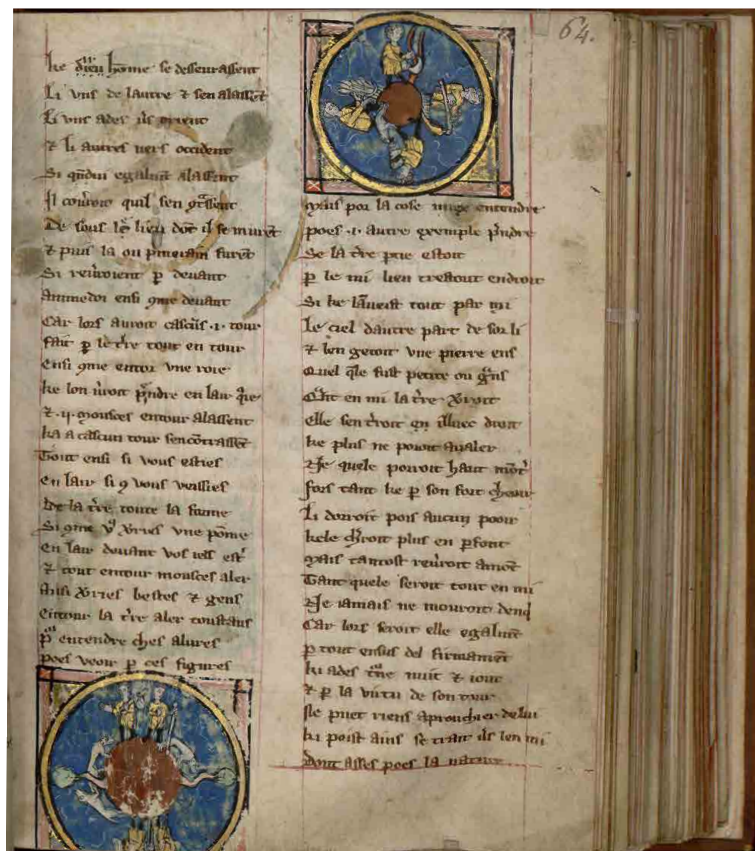 ke diex hōme se desseurassent
Li uns de lautre & sen alassēt
Li uns ades ūs orient
& li autres uers occident
Si qndui egalmēt alassent
Il cōuroit quil sen
De sous le lieu dōt il se murēt
& puis la ou pmerain furēt
Si reuroient p deuant
ensi 9me deuant
Car lors auroit cascūs .i. tour
fait p le tre tout en tour
Ensi 9me entor une roie
ke lon uroit pndre en lair
& .ij. mousces entour alassent
ka a cascun tour sencōtrassēt
Tout ensi si uous esties
En lair si 9 uous ueissies
De la tre toute la forme
Si 9me une pōme
En lair deuant uos iels est
& tout entour mousces aler
Aisi bestes & gens
Entour la tre aler toustans
entendre ches alures
poes ueoir p ces figures
64.
Mais por la cose miex entendre
poes .i. autre exemple pndre
Se la tre pcie estoit
p le mi lieu trestout endroit
Si ke lā ueist tout par mi
Le ciel dautre part de sor li
& len getoit une pierre ens
Quel qle fust petite ou
Qnt en mi la tre
elle sen illuec droit
ke plus ne poroit aualer
Ne quele porroit haut
fors tant ke p son fort
Li dorroit pois aucun pooir
kele plus en pfont
Mais tantost reuroit amōt
Tant quele seroit tout en mi
Ne iamais ne mouroit
Car lors seroit elle egalmēt
p tout ensus del firmamēt
ki ades nuit & iour
& p la uirtu de son tour
Ne puet riens aprouchier de lui
ki poist ains se trait ūs len mi
Dont asses poes la nature